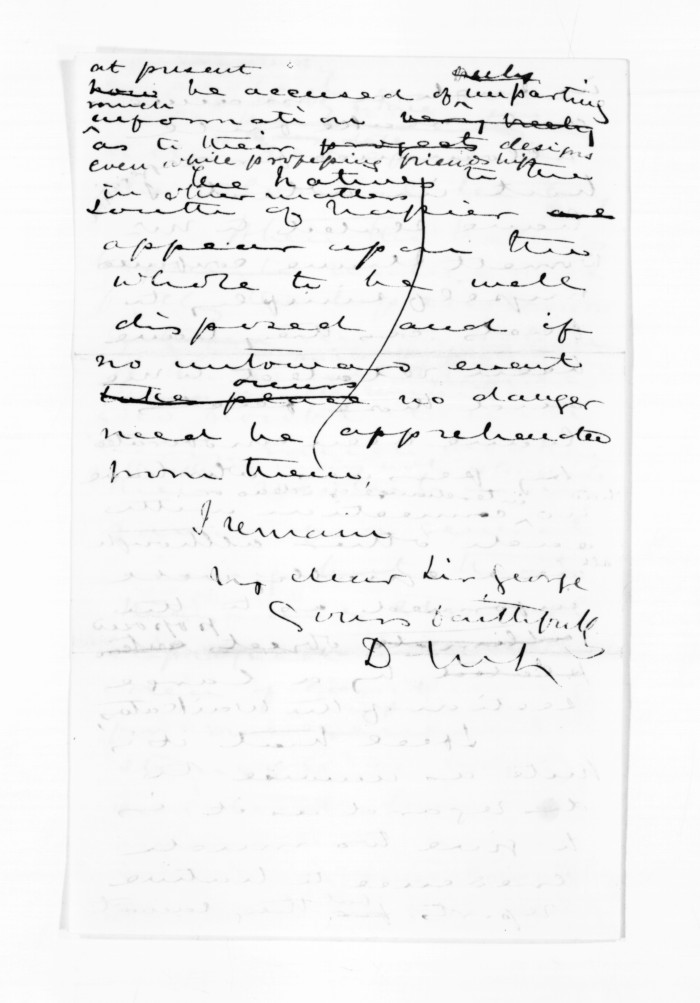 at present
now be accused of only imparting
much
information very freely
as to their projects designs
even while professing friendship
the Natives to the
in other matters
South of Napier are
appear upon the
whole to be well
disposed and if
no untoward event
occurs
take place no danger
need be apprehended
from them,
I remain
My dear Sir George
Yours faithfully
D McL